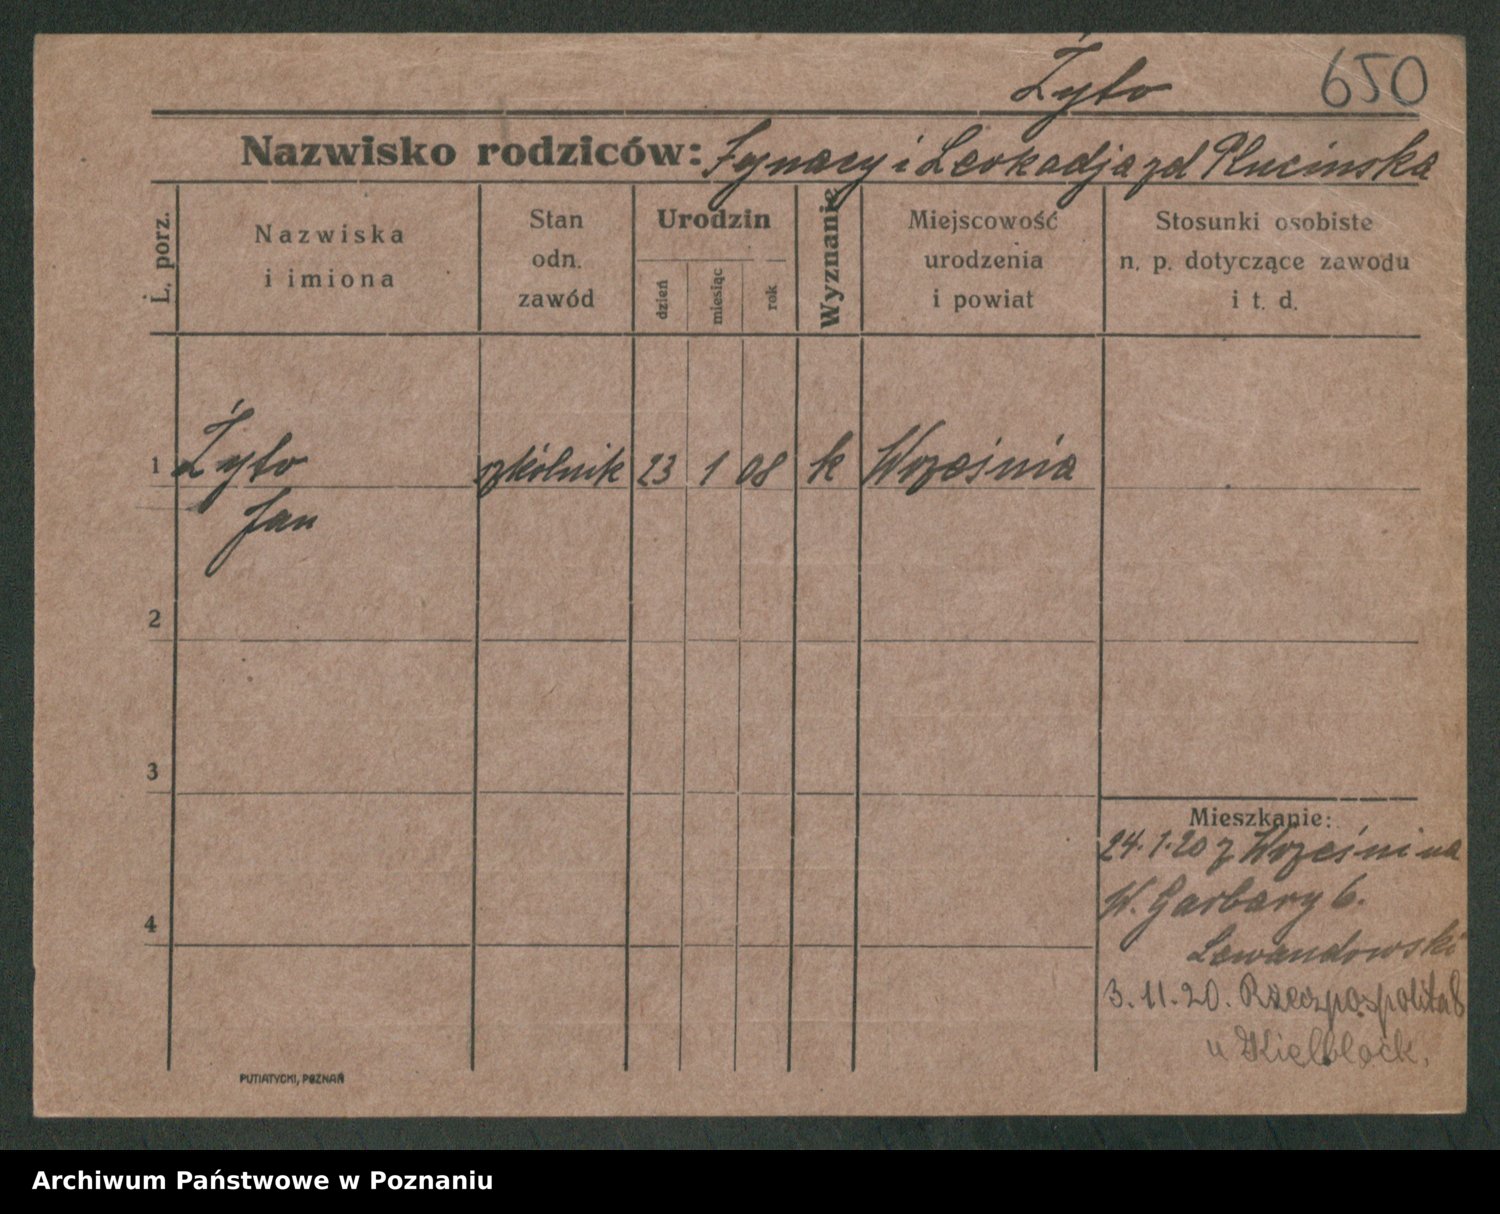 Żyto 650
Nazwisko rodziców: Ignacy i Leokadja zd Plucinska
L. porz.
Nazwiska
i imiona
Stan
odn.
zawód
Urodzin
dzień
miesiąc
rok
Wyznanie
Miejscowość
urodzenia
i powiat
Stosunki osobiste
n. p. dotyczące zawodu
i t. d.
1 Żyto szkólnik 23 1 08 k Wrześnią
Jan
2
3
4
Mieszkanie:
24.1.20 z Wrześni na
W. Garbary 6.
Lewandowski
3.11.20. Rzeczpospolita 8
u Kielblock.
PUTIATYCKI, POZNAŃ
Archiwum Państwowe w Poznaniu